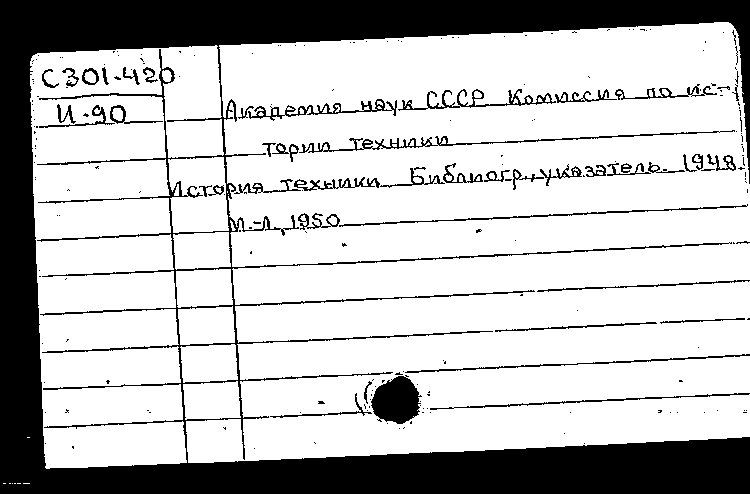 С301-420
И-90
Академия наук СССР Комиссия по ис-
тории техники
История техники Библиогр., указатель. 1948.
М.-Л., 1950